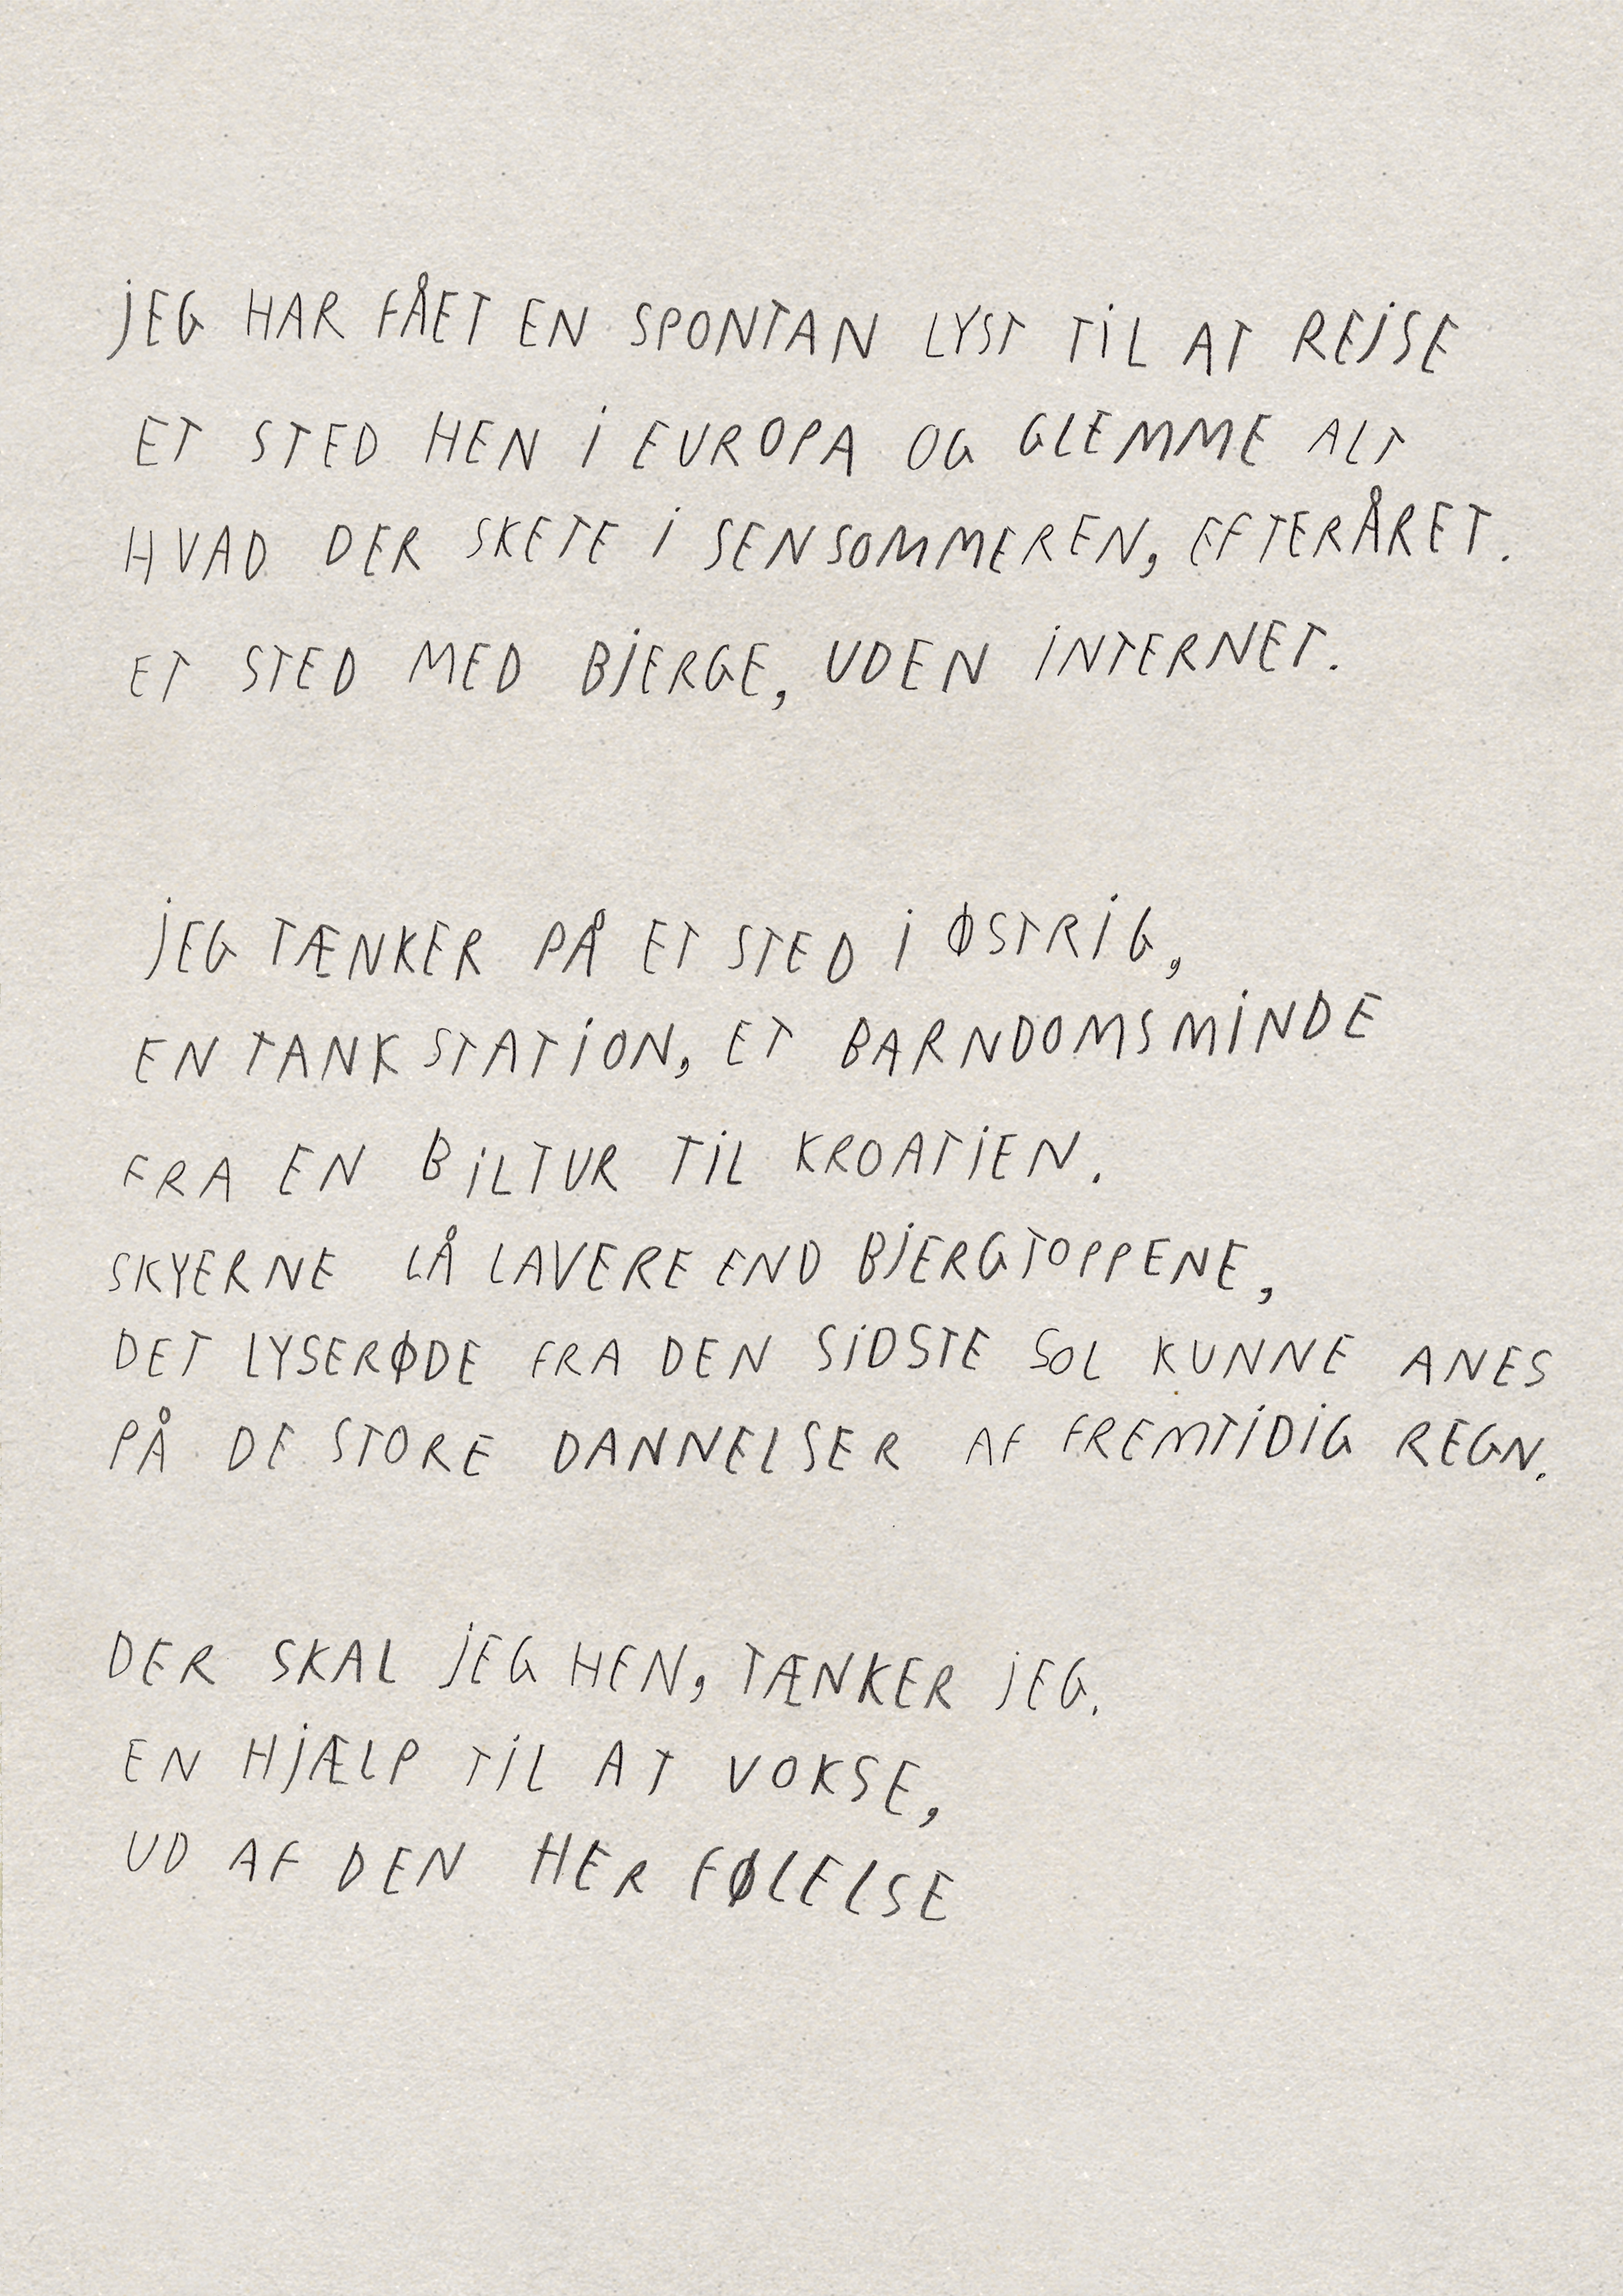 JEG HAR FÅET EN SPONTAN LYST TIL AT REJSE
ET STED HEN I EUROPA OG GLEMME ALT
HVAD DER SKETE I SENSOMMEREN, EFTERÅRET.
ET STED MED BJERGE, UDEN INTERNET.
JEG TÆNKER PÅ ET STED I ØSTRIG,
EN TANKSTATION, ET BARNDOMSMINDE
FRA EN BILTUR TIL KROATIEN.
SKYERNE LÅ LAVERE END BJERGTOPPENE,
DET LYSERØDE FRA DEN SIDSTE SOL KUNNE ANES
PÅ DE STORE DANNELSER AF FREMTIDIG REGN.
DER SKAL JEG HEN, TÆNKER JEG.
EN HJÆLP TIL AT VOKSE,
UD AF DEN HER FØLELSE